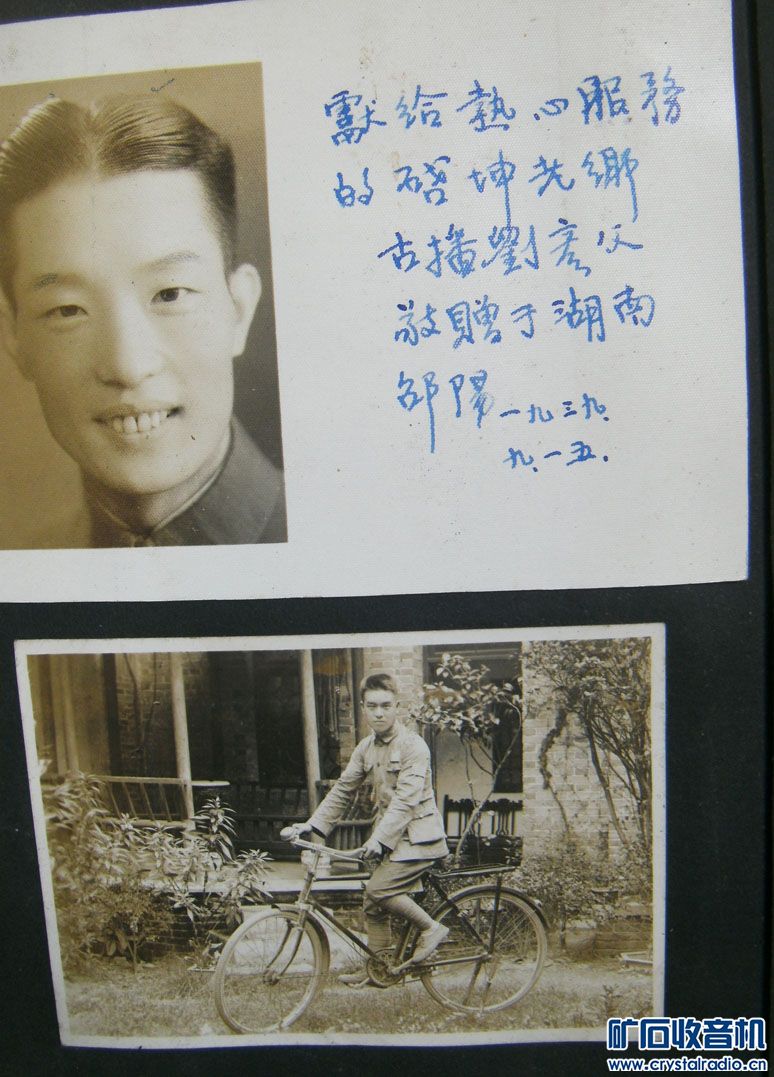 獻給熱心服務
的啓坤先鄉
古播劉彥父
敬贈于湖南
邵陽一九三九.
九.一五.
矿石收音机
www.crystalradio.cn